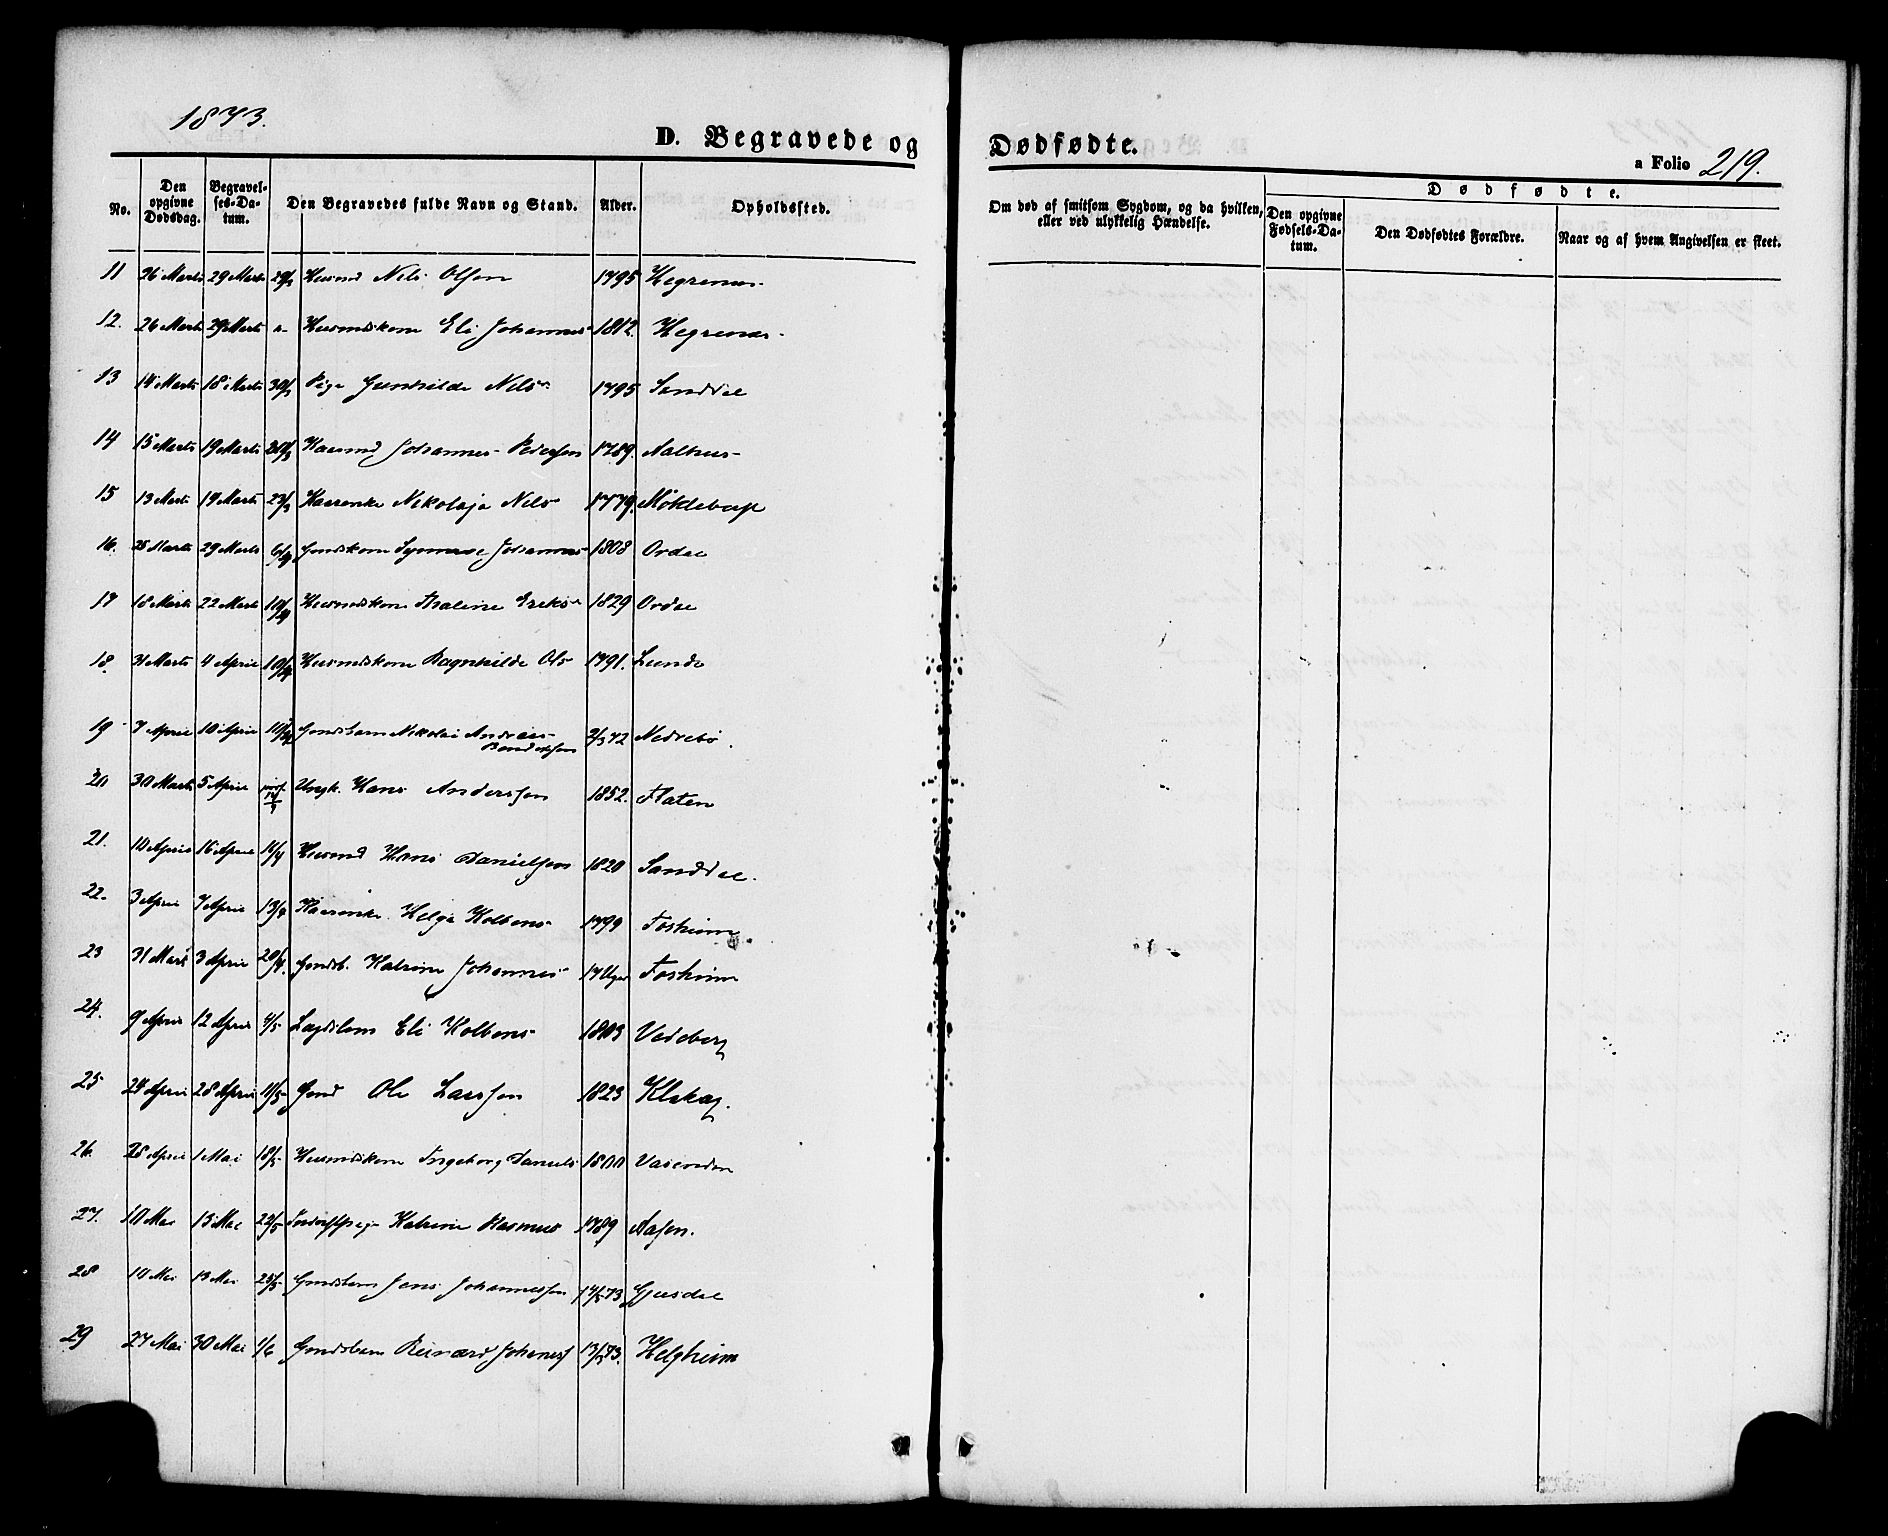 1873.
D. Begravede og Dødfødte.
a Folio 219.
No.
Den opgivne Dødsdag.
Begravelses-Datum.
Den Begravedes fulde Navn og Stand.
Alder.
Opholdssted.
Om død af smitsom Sygdom, og da hvilken, eller ved ulykkelig Hændelse.
Dødfødte.
Den opgivne Fødsels-Datum.
Den Dødfødtes Forældre.
Naar og af hvem Angivelsen er skeet.
11 26 Marts 29 Marts 29/3 Husmd Nils Olsen 1795 Hegrenæs
12. 26 Marts 29 Marts Husmdskone Eli Johannes 1812. Hegrenæs
13 14 Marts 18 Marts 30/3 Pige Gunhilde Nils 1795 Sanddal
14 15 Marts 19 Marts 30/3 Kaarmd Johannes Pedersen 1789. Aalhus
15 13 Marts 19 Marts 23/3 Kaarenke Nikolaja Nils 1779. Møklebust
16. 25 Marts 29 Marts 6/4 Gmdskone Synneve Johannes 1808 Ordal
17 18 Marts 22 Marts 10/4 Husmdskone Thaline Eriks 1829 Ordal
18. 31 Marts 4 April 10/4 Husmdskone Ragnhilde Ols 1791. Lunde
19 7 April 10 April Gmdsbarn Nikolai Andreas Bendiksen 2/3 72 Nedrebø.
20 30 Marts 5 April Ungk. Hans Anderssen 1852. Flaten
21. 10 April 16 April 16/4 Husmd Hans Danielsen 1820 Sanddal.
22. 3 April 7 April 13/4 Kaarenke Helga Kolbens 1799 Fosheim
23 31 Mars 3 April 20/4. Gmdsb. Katrine Johannes 17 Uger Fosheim
24. 9 April 12 April 4/5 Lægdslem Eli Kolbens 1803 Vedeberg
25 24 April 28 April 11/5 Gmd Ole Larssen 1823 Klakeg.
26. 28 April 1 Mai 18/5 Husmdskone Ingeborg Daniels 1800 Vasenden
27. 10 Mai 13 Mai 22/5 Katrine Rasmus 1789 Aasen.
28 10 Mai 13 Mai 25/5 Gmdsbarn Jens Johannessen 14/5 73 Gjesdal
29 27 Mai 30 Mai 1/6 Gmdsbarn Reinard Johaness 13/5 73. Helgheim